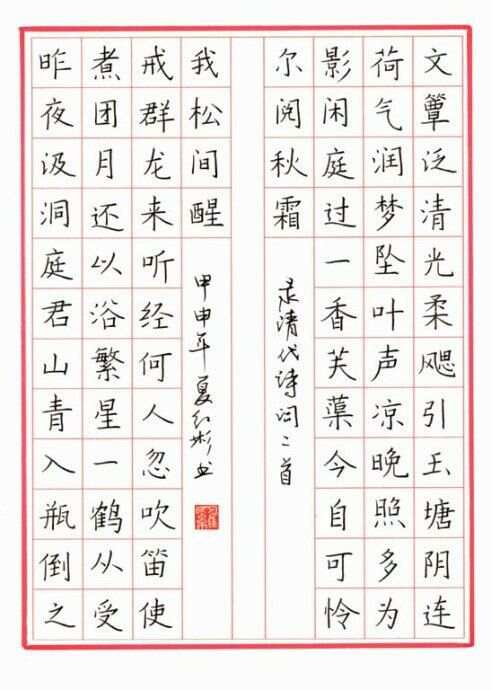 文簟泛清光柔飔引玉塘阴连
荷气润梦坠叶声凉晚照多为
影闲庭过一香芙蕖今自可怜
尔阅秋霜
录清代诗词二首
昨夜汲洞庭君山青入瓶倒之
煮团月还以浴繁星一鹤从受
戒群龙来听经何人忽吹笛使
我松间醒
甲申年夏红彬书